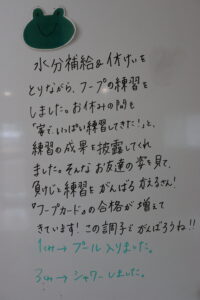 水分補給&休けいを
とりながら、フープの練習を
しました。お休みの間も
「家で、いっぱい練習してきた!」と、
練習の成果を披露してくれ
ました。そんなお友達の姿を見て、
負けじと練習をがんばるかえるさん!
『フープカード』の合格が増えて
きています! この調子でがんばろうね!!
1くみ→プール入りました。
3くみ→シャワーしました。